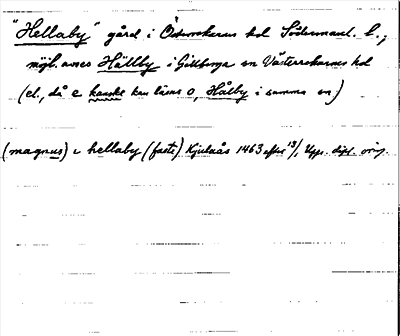 "Hellaby" gård i Österrekarne hd Södermanl. l.;
möjl. avses Hällby i Gillberga sn Västerrekarnes hd
(el., då e kanske kan läsas o, Hålby i samma sn)
(magnus) i hellaby (faste) Kjulaås 1463 efter 13/1 Upps. dipl. orig.